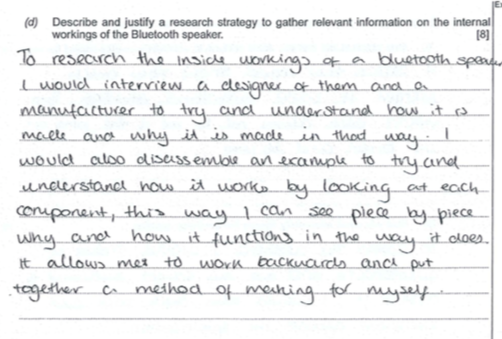 (d) Describe and justify a research strategy to gather relevant information on the internal
workings of the Bluetooth speaker. [8]
To research the inside workings of a bluetooth speaker
I would interview a designer of them and a
manufacturer to try and understand how it is
made and why it is made in that way. I
would also disassemble an example to try and
understand how it works by looking at each
component, this way I can see piece by piece
why and how it functions in the way it does.
It allows me to work backwards and put
together a method of making for myself.